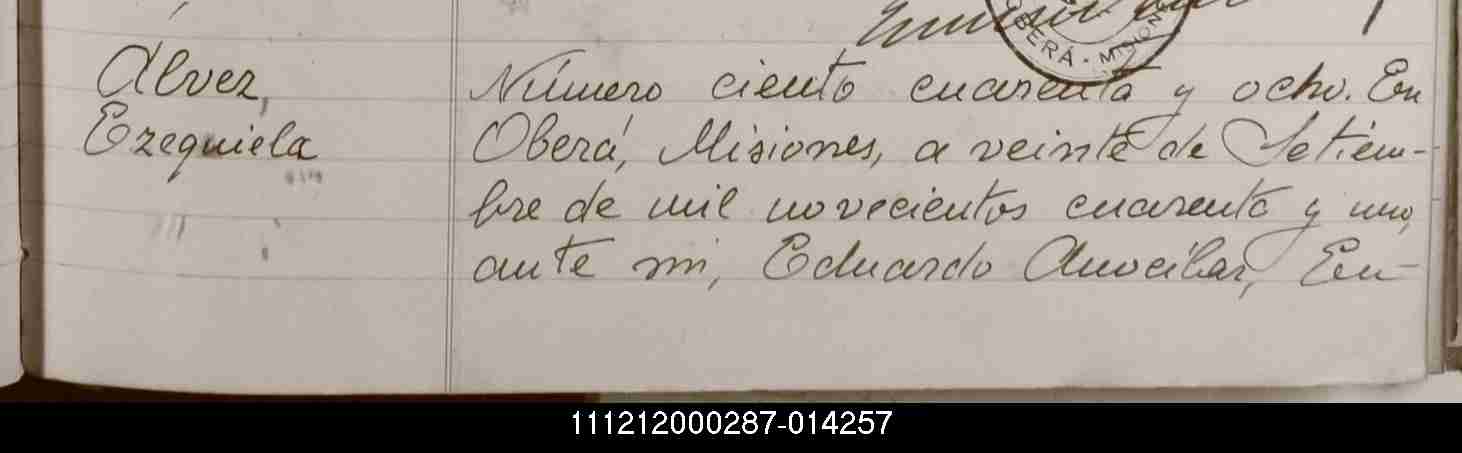 OBERÁ - MISION
Alvez,
Ezequiela
Número ciento cuarenta y ocho. En
Oberá, Misiones, a veinte de Setiem-
bre de mil novecientos cuarenta y uno,
ante mi, Eduardo Anocíbar, En-
111212000287-014257